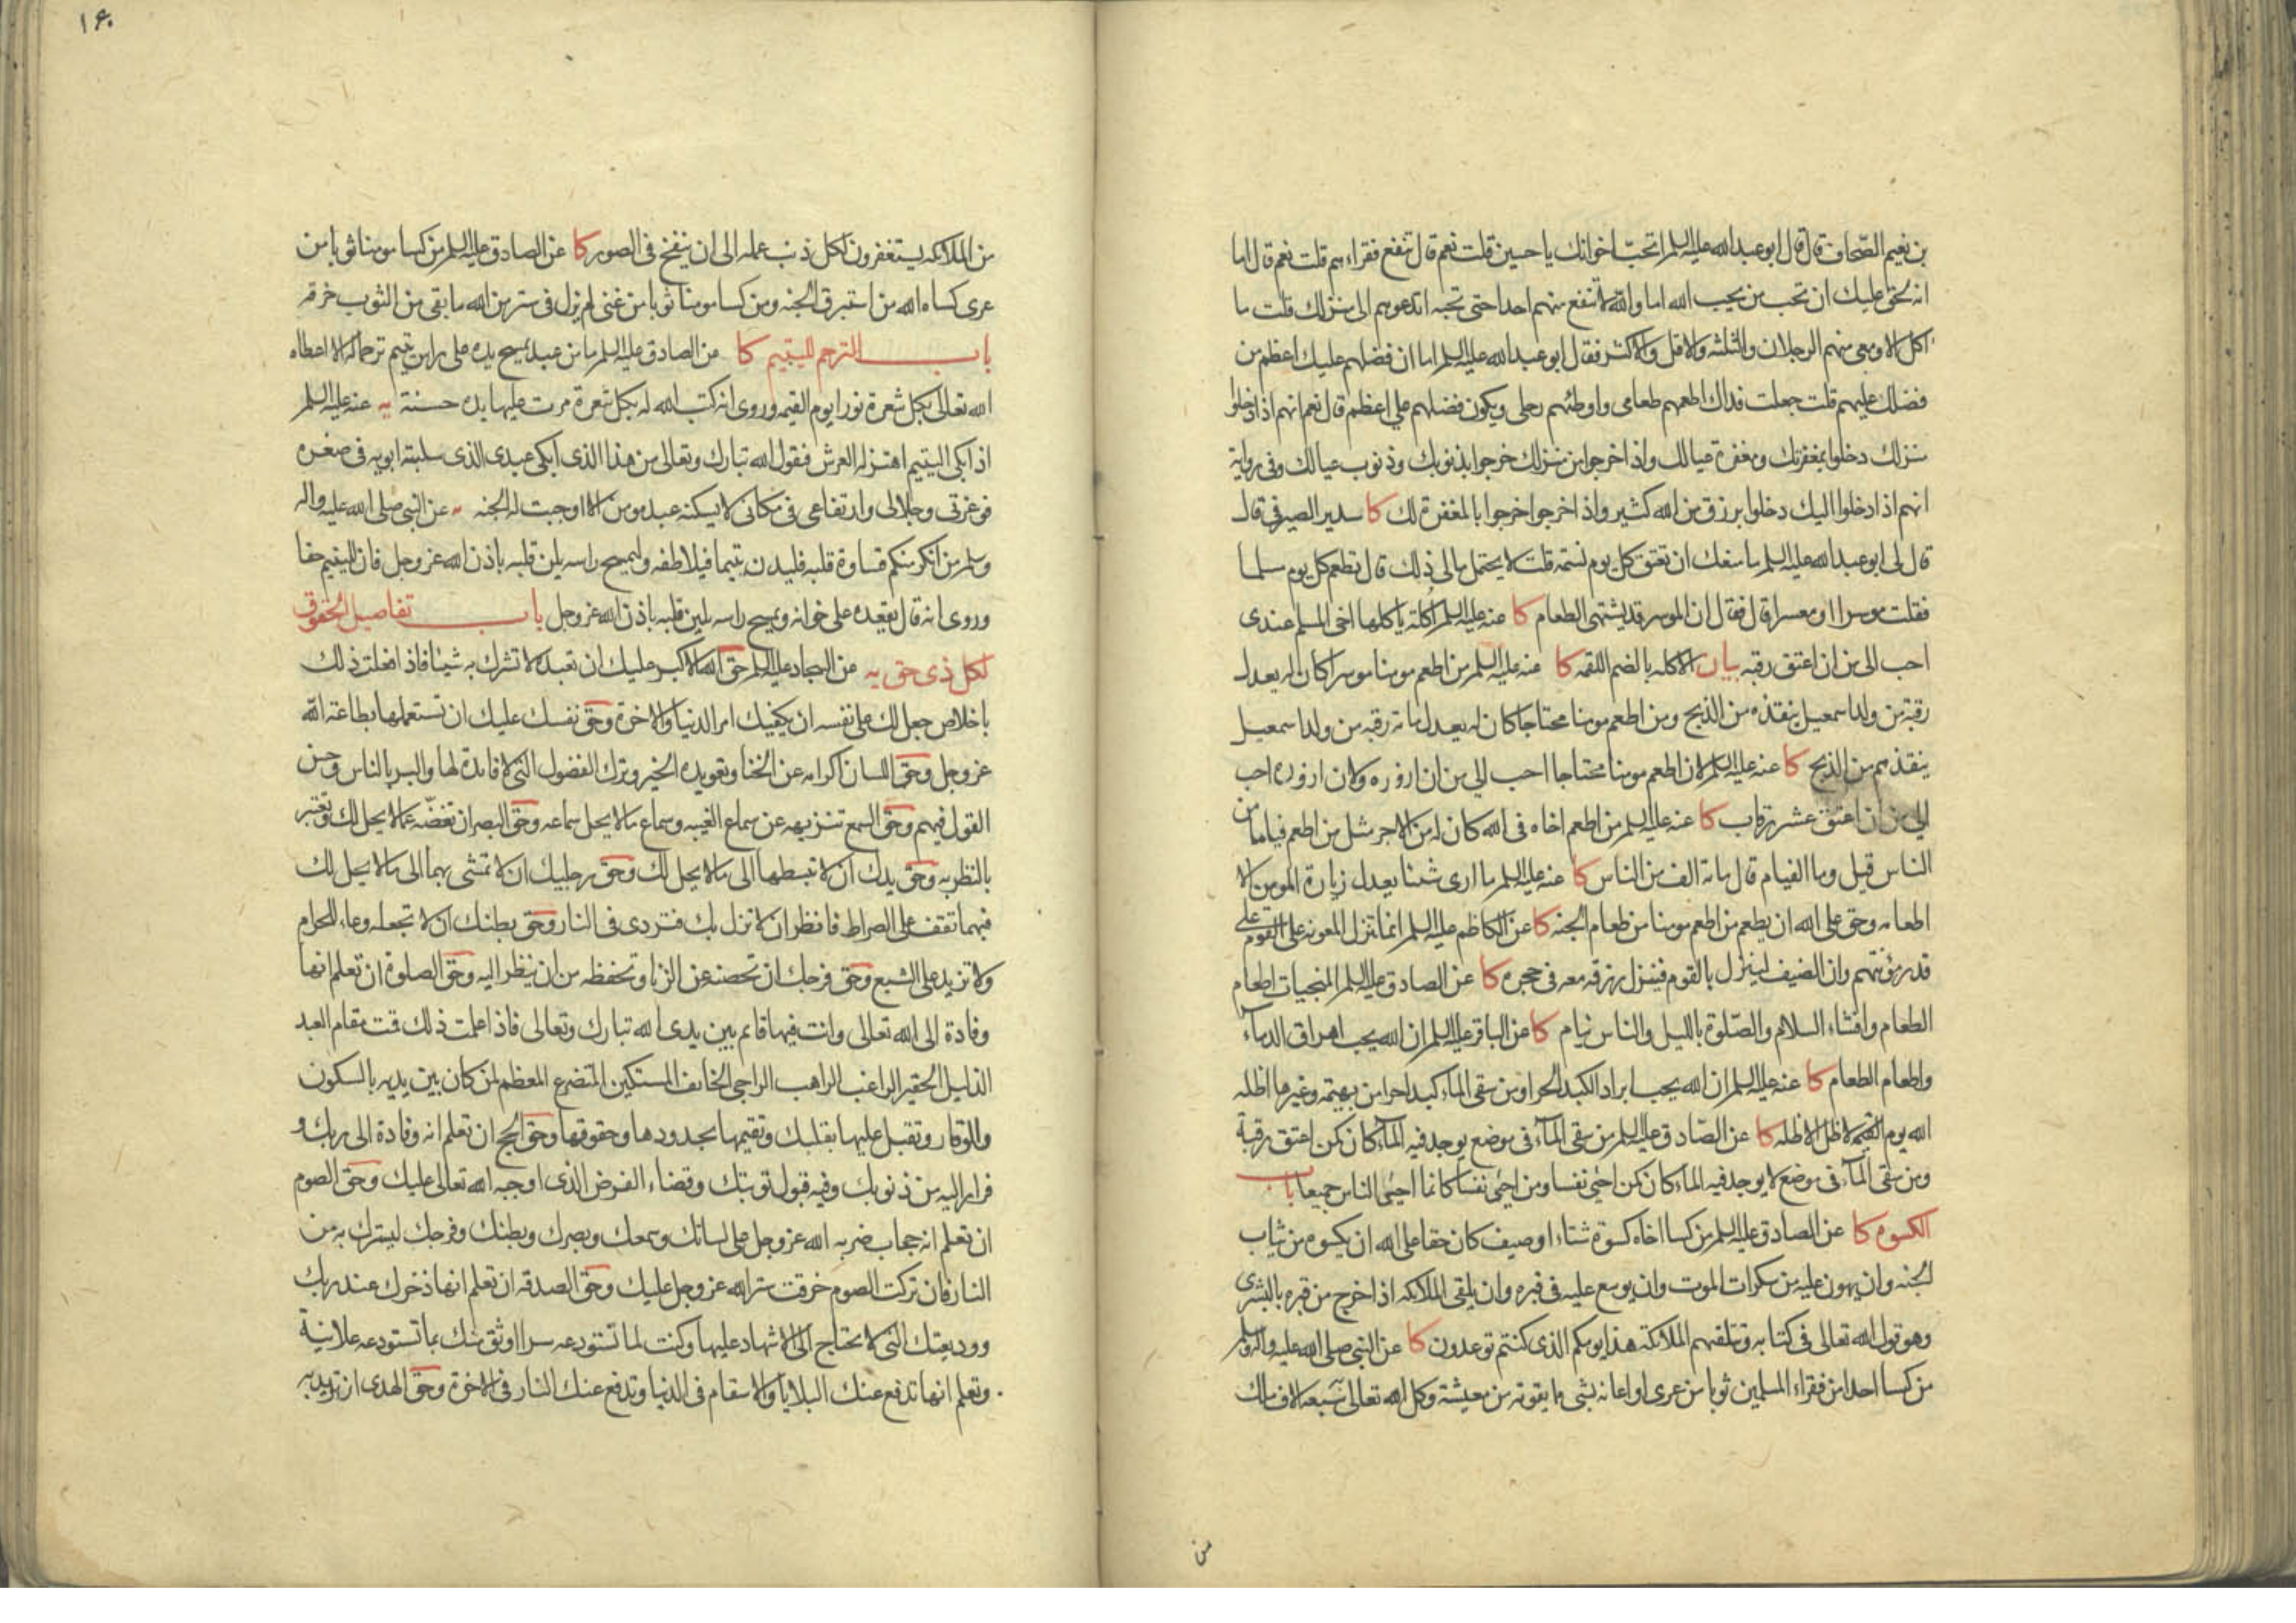 بن نعيم الصحاف قال قال ابو عبد الله عليه السلم اتحب اخوانك يا حسين قلت نعم قال تنفع فقراءهم قلت نعم قال اما
انه يحق عليك ان تحب من يحب الله اما والله لا تنفع منهم احدا حتى تحبه اتدعوهم الى منزلك قلت ما
اكل الا ومعي منهم الرجلان والثلثه والاقل والاكثر فقال ابو عبد الله عليه السلم اما ان فضلهم عليك اعظم من
فضلك عليهم قلت جعلت فداك اطعمهم طعامى واوطئهم رحلى ويكون فضلهم علي اعظم قال نعم انهم اذا دخلوا
منزلك دخلوا بمغفرتك ومغفرة عيالك واذا خرجوا من منزلك خرجوا بذنوبك وذنوب عيالك وفى رواية
انهم اذا دخلوا اليك دخلوا برزق من الله كثير واذا خرجوا خرجوا بالمغفرة لك كا سدير الصيرفى قال
قال لى ابو عبد الله عليه السلم ما منعك ان تعتق كل يوم نسمه قلت لا يحتمل مالى ذلك قال تطعم كل يوم مسلما
فقلت موسرا او معسرا قال فقال ان الموسر قد يشتهى الطعام كا عنه عليه السلم اكلة ياكلها اخى المسلم عندى
احب الى من ان اعتق رقبه بيان الاكله بالضم اللقمه كا عنه عليه السلم من اطعم مومنا موسرا كان له يعدل
رقبة من ولد اسمعيل ينقذه من الذبح ومن اطعم مومنا محتاجا كان له يعدل مائة رقبه من ولد اسمعيل
ينقذهم من الذبح كا عنه عليه السلم لان اطعم مومنا محتاجا احب الي من ان ازوره ولان ازوره احب
الي من ان اعتق عشر رقاب كا عنه عليه السلم من اطعم اخاه فى الله كان له من الاجر مثل من اطعم فياما من
الناس قيل وما الفيام قال مائة الف من الناس كا عنه عليه السلم ما ارى شيئا يعدل زيارة المومن الا
اطعامه وحق على الله ان يطعم من اطعم مومنا من طعام الجنه كا عن الكاظم عليه السلم انما تنزل المعونه على القوم على
قدر مؤنتهم وان الضيف لينزل بالقوم فينزل رزقه معه فى حجره كا عن الصادق عليه السلم المنجيات اطعام
الطعام وافشاء السلام والصلوة بالليل والناس نيام كا عن الباقر عليه السلم ان الله يحب اهراق الدماء
واطعام الطعام كا عنه عليه السلم ان الله يحب ابراد الكبد الحرا ومن سقى الماء كبدا حرا من بهيمة وغيرها اظله
الله يوم القيمه لا ظل الا ظله كا عن الصادق عليه السلم من سقى الماء فى موضع يوجد فيه الماء كان كمن اعتق رقبة
ومن سقى الماء فى موضع لا يوجد فيه الماء كان كمن احيى نفسا ومن احيى نفسا كانما احيى الناس جميعا باب
الكسوه كا عن الصادق عليه السلم من كسا اخاه كسوة شتاء او صيف كان حقا على الله ان يكسوه من ثياب
الجنه وان يهون عليه من سكرات الموت وان يوسع عليه فى قبره وان يلقى الملائكه اذا خرج من قبره بالبشرى
وهو قول الله تعالى فى كتابه وتتلقهم الملائكة هذا يومكم الذى كنتم توعدون كا عن النبى صلى الله عليه واله وسلم
من كسا احدا من فقراء المسلمين ثوبا من عرى او اعانه بشى مما يقوته من معيشة وكل الله تعالى سبعة الاف ملك
من
١٦٠
من الملائكه يستغفرون لكل ذنب عمله الى ان ينفخ فى الصور كا عن الصادق عليه السلم من كسا مومنا ثوبا من
عرى كساه الله من استبرق الجنه ومن كسا مومنا ثوبا من غنى لم يزل فى ستر من الله ما بقى من الثوب خرقه
باب الترحم لليتيم كا عن الصادق عليه السلم ما من عبد يمسح يده على راس يتيم ترحما له الا اعطاه
الله تعالى بكل شعرة نورا يوم القيمه وروى انه كتب الله له بكل شعرة مرت عليها يده حسنة يه عنه عليه السلم
اذا بكى اليتيم اهتز له العرش فيقول الله تبارك وتعالى من هذا الذى ابكى عبدى الذى سلبته ابويه فى صغره
فوعزتى وجلالى وارتفاعى فى مكانى لا يسكته عبد مومن الا اوجبت له الجنه يه عن النبى صلى الله عليه واله
وسلم من انكر منكم قساوة قلبه فليدن يتيما فيلاطفه وليمسح راسه يلين قلبه باذن الله عز وجل فان لليتيم حقا
وروى انه قال يقعده على خوانه ويمسح راسه يلين قلبه باذن الله عز وجل باب تفاصيل الحقوق
لكل ذى حق يه عن السجاد عليه السلم حق الله الاكبر عليك ان تعبده لا تشرك به شيئا فاذا فعلت ذلك
باخلاص جعل لك على نفسه ان يكفيك امر الدنيا والاخرة وحق نفسك عليك ان تستعملها بطاعة الله
عز وجل وحق اللسان اكرامه عن الخنا وتعويده الخير وترك الفضول التى لا فائدة لها والبر بالناس وحسن
القول فيهم وحق السمع تنزيهه عن سماع الغيبه وسماع ما لا يحل سماعه وحق البصر ان تغضه عما لا يحل لك وتعتبر
بالنظر به وحق يدك ان لا تبسطها الى ما لا يحل لك وحق رجليك ان لا تمشى بهما الى ما لا يحل لك
فبهما تقف على الصراط فانظر ان لا تزل بك فتردى فى النار وحق بطنك ان لا تجعله وعاء للحرام
ولا تزيد على الشبع وحق فرجك ان تحصنه عن الزنا وتحفظه من ان ينظر اليه وحق الصلوة ان تعلم انها
وفادة الى الله تعالى وانت فيها قائم بين يدى الله تبارك وتعالى فاذا علمت ذلك قمت مقام العبد
الذليل الحقير الراغب الراهب الراجى الخائف المستكين المتضرع المعظم لمن كان بين يديه بالسكون
والوقار وتقبل عليها بقلبك وتقيمها بحدودها وحقوقها وحق الحج ان تعلم انه وفادة الى ربك و
فرار اليه من ذنوبك وفيه قبول توبتك وقضاء الفرض الذى اوجبه الله تعالى عليك وحق الصوم
ان تعلم انه حجاب ضربه الله عز وجل على لسانك وسمعك وبصرك وبطنك وفرجك ليسترك به من
النار فان تركت الصوم خرقت ستر الله عز وجل عليك وحق الصدقه ان تعلم انها ذخرك عند ربك
ووديعتك التى لا تحتاج الى الاشهاد عليها وكنت لما تستودعه سرا اوثق منك بما تستودعه علانية
وتعلم انها تدفع عنك البلايا والاسقام فى الدنيا وتدفع عنك النار فى الاخرة وحق الهدى ان تريد به